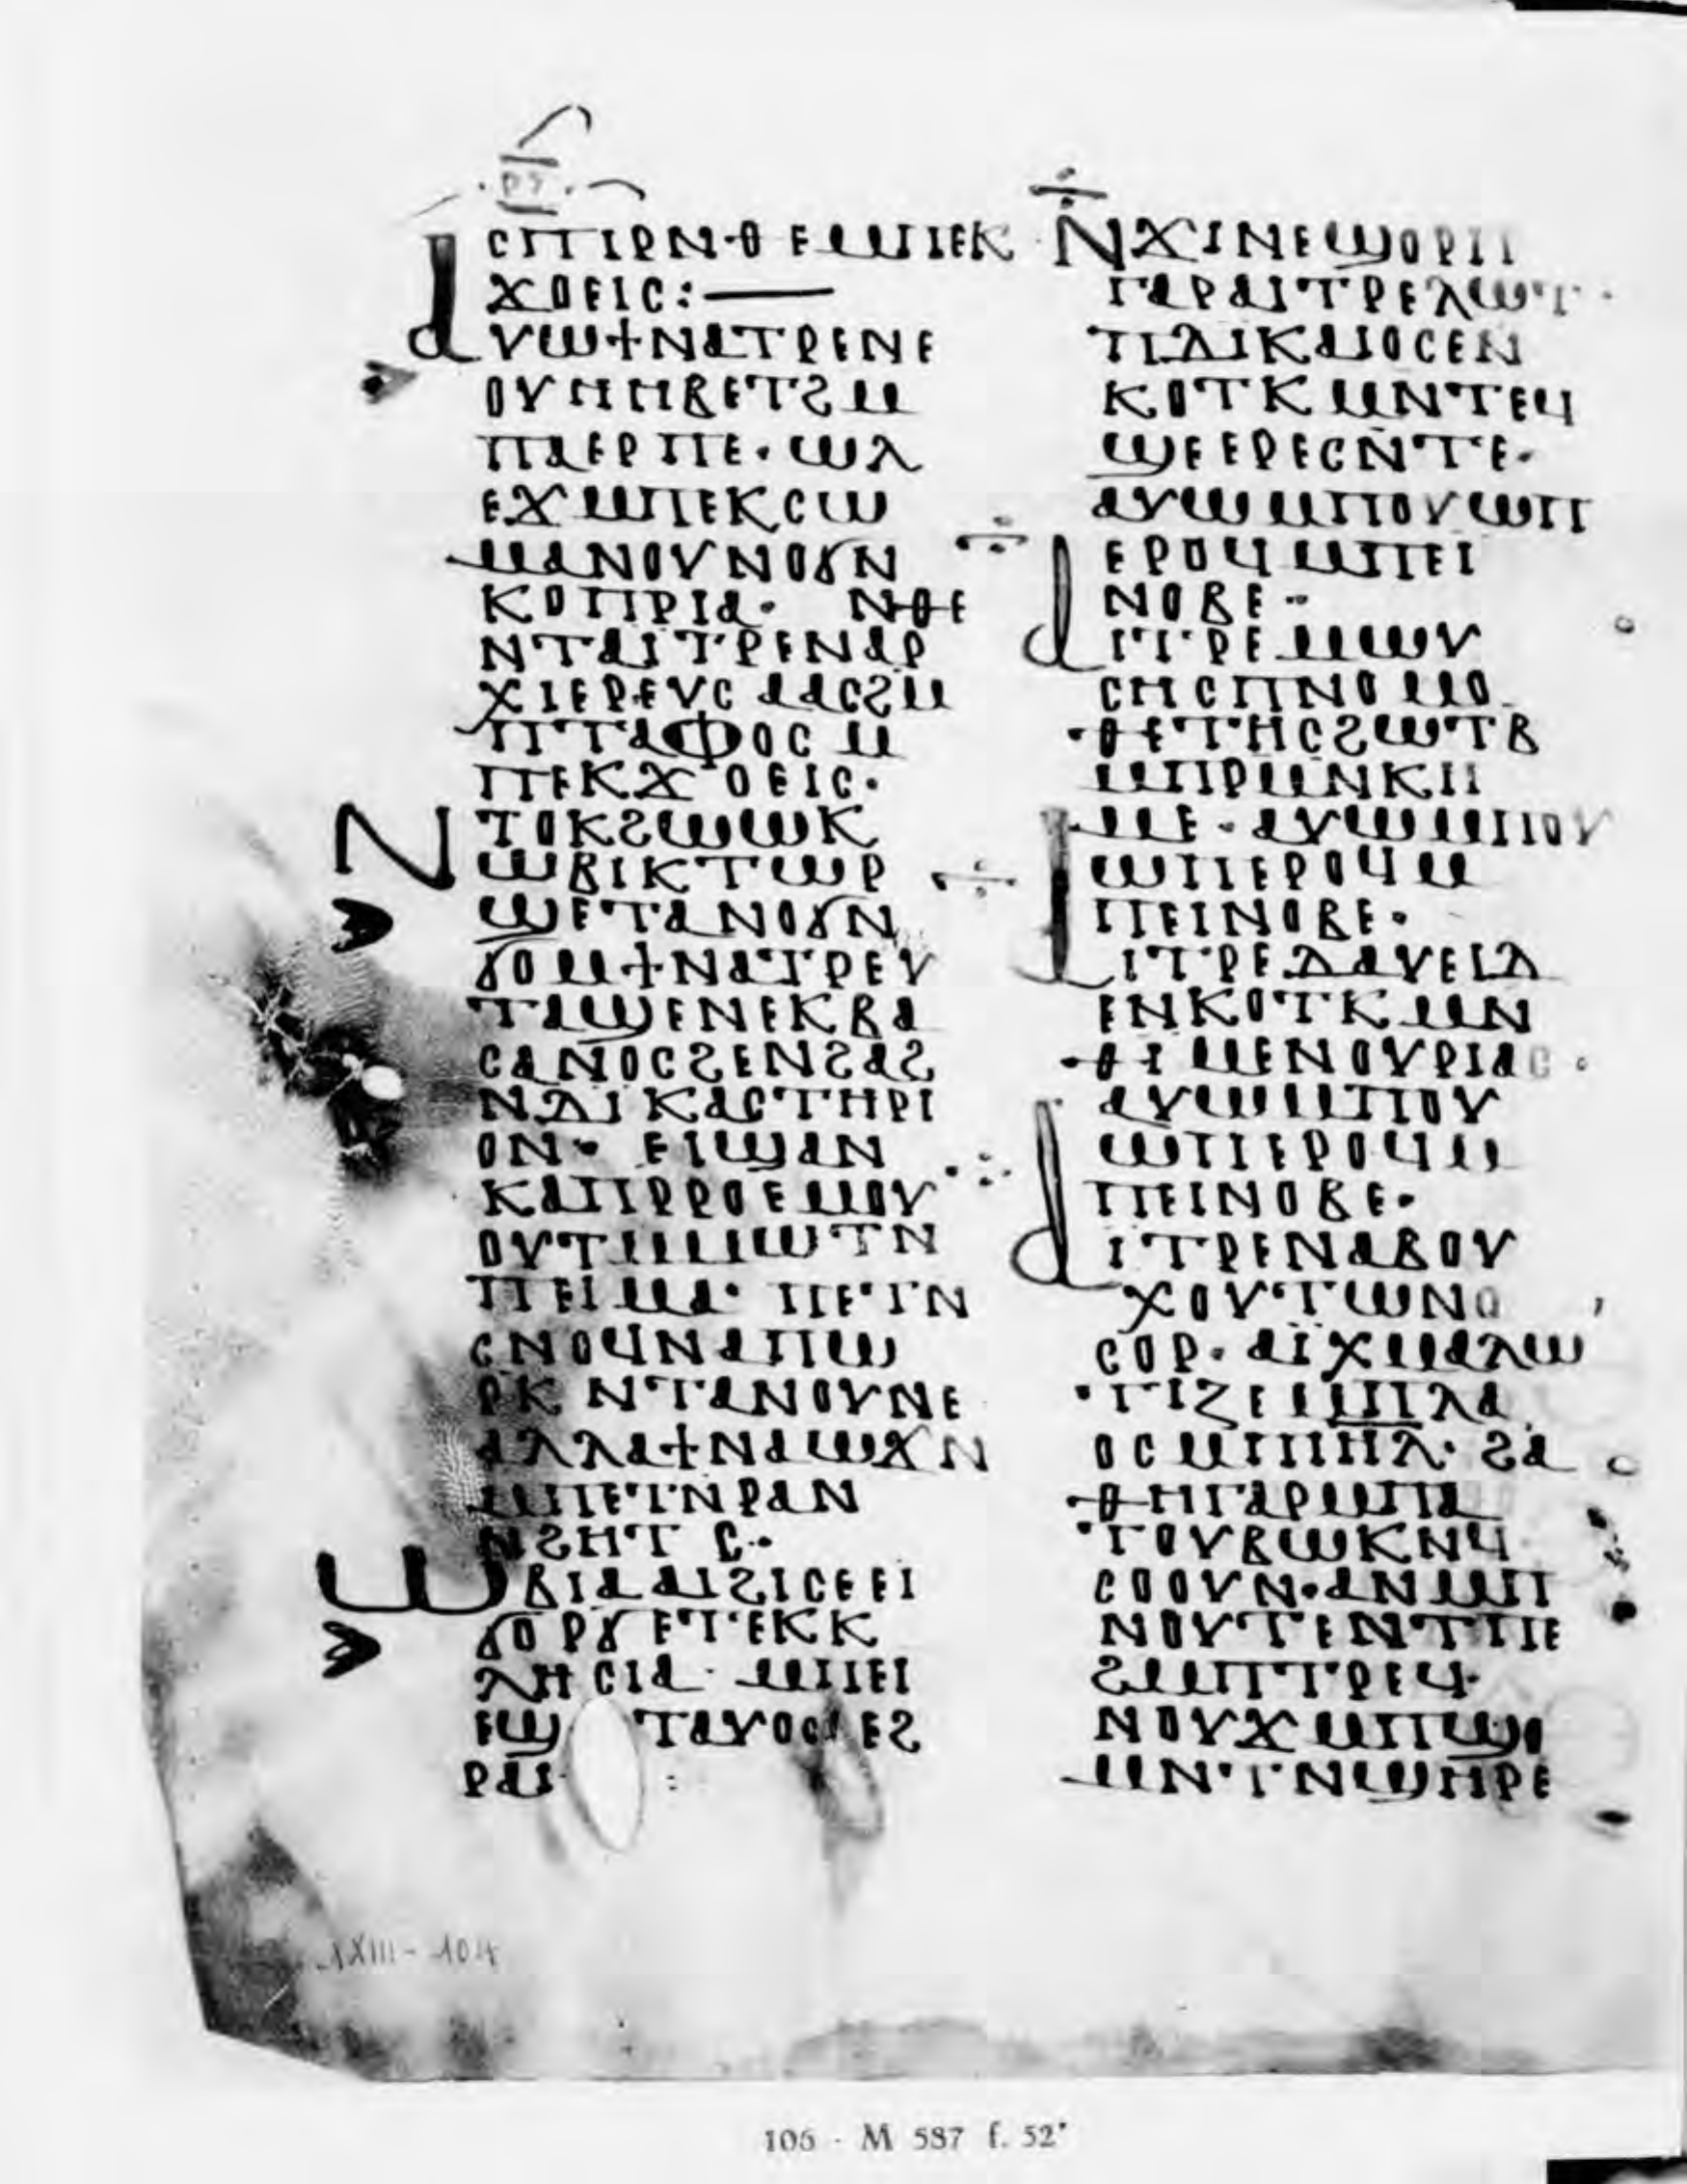 ⲣⲋ
ⲥⲡⲓⲣⲛⲑⲉⲙⲡⲉⲕ
ϫⲟⲉⲓⲥ:—
ⲁⲩⲱϯⲛⲁⲧⲣⲉⲛⲉ
ⲟⲩⲏⲏⲃⲉⲧϩⲙ
ⲡⲁⲉⲣⲡⲉ· ⲱⲗ
ⲉϫⲙⲡⲉⲕⲥⲱ
ⲙⲁⲛⲟⲩⲛⲟϭⲛ
ⲕⲟⲡⲣⲓⲁ· ⲛⲑⲉ
ⲛⲧⲁⲓⲧⲣⲉⲛⲁⲣ
ⲭⲓⲉⲣⲉⲩⲥ ⲁⲁⲥϩⲙ
ⲡⲧⲁⲫⲟⲥ ⲙ
ⲡⲉⲕϫⲟⲉⲓⲥ·
ⲛⲧⲟⲕϩⲱⲱⲕ
ⲱⲃⲓⲕⲧⲱⲣ
ϣⲉⲧⲁⲛⲟϭⲛ
ϭⲟⲙϯⲛⲁⲧⲣⲉⲩ
ⲧⲁϣⲉⲛⲉⲕⲃⲁ
ⲥⲁⲛⲟⲥϩⲉⲛϩⲁϩ
ⲛⲇⲓⲕⲁⲥⲧⲏⲣⲓ
ⲟⲛ· ⲉⲓϣⲁⲛ
ⲕⲁⲡⲣⲣⲟⲉⲙⲟⲩ
ⲟⲩⲧⲙⲙⲱⲧⲛ
ⲡⲉⲓⲙⲁ· ⲡⲉⲧⲛ
ⲥⲛⲟϥⲛⲁⲡⲱ
ⲣⲕ ⲛⲧⲁⲛⲟⲩⲛⲉ
ⲁⲗⲗⲁϯⲛⲁⲱϫⲛ
ⲙⲡⲉⲧⲛⲣⲁⲛ
ⲛϩⲏⲧⲥ·
ⲱⲃⲓⲁⲁⲓϩⲓⲥⲉⲉⲓ
ϭⲟⲣϭⲉⲧⲉⲕⲕ
ⲗⲏⲥⲓⲁ· ⲙⲡⲉⲓ
ⲉϣ ⲧⲁⲩⲟⲥ ⲉϩ
ⲣⲁⲓ :
ⲛϫⲓⲛⲉϣⲟⲣⲡ
ⲅⲁⲣⲁⲓⲧⲣⲉⲗⲱⲧ
ⲡⲇⲓⲕⲁⲓⲟⲥⲉⲛ
ⲕⲟⲧⲕⲙⲛⲧⲉϥ
ϣⲉⲉⲣⲉⲥⲛⲧⲉ·
ⲁⲩⲱⲙⲡⲟⲩⲱⲡ
ⲉⲣⲟϥⲙⲡⲉⲓ
ⲛⲟⲃⲉ·
ⲁⲓⲧⲣⲉⲙⲱⲩ
ⲥⲏⲥⲡⲛⲟⲙⲟ
ⲑⲉⲧⲏⲥϩⲱⲧⲃ
ⲙⲡⲣⲙⲛⲕⲏ
ⲙⲉ· ⲁⲩⲱⲙⲡⲟⲩ
ⲱⲡⲉⲣⲟϥⲙ
ⲡⲉⲓⲛⲟⲃⲉ·
ⲁⲓⲧⲣⲉⲇⲁⲩⲉⲓⲇ
ⲉⲛⲕⲟⲧⲕⲙⲛ
ⲑⲓⲙⲉⲛⲟⲩⲣⲓⲁⲥ·
ⲁⲩⲱⲙⲡⲟⲩ
ⲱⲡⲉⲣⲟϥⲙ
ⲡⲉⲓⲛⲟⲃⲉ·
ⲁⲓⲧⲣⲉⲛⲁⲃⲟⲩ
ⲭⲟⲩⲧⲱⲛⲟ
ⲥⲟⲣ· ⲁⲓⲭⲙⲁⲗⲱ
ⲧⲓⲍⲉⲓⲙⲡⲗⲁ
ⲟⲥⲙⲡⲓⲏⲗ· ϩⲁ
ⲑⲏⲅⲁⲣⲙⲡⲁ
ⲧⲟⲩⲃⲱⲕⲛϥ
ⲥⲟⲟⲩⲛ·ⲁⲛⲙⲡ
ⲛⲟⲩⲧⲉⲛⲧⲡⲉ
ϩⲙⲡⲧⲣⲉϥ
ⲛⲟⲩϫⲙⲡϣⲟ
ⲙⲛⲧⲛϣⲏⲣⲉ
LXIII - 104
106 - M 587 f. 52ᵛ